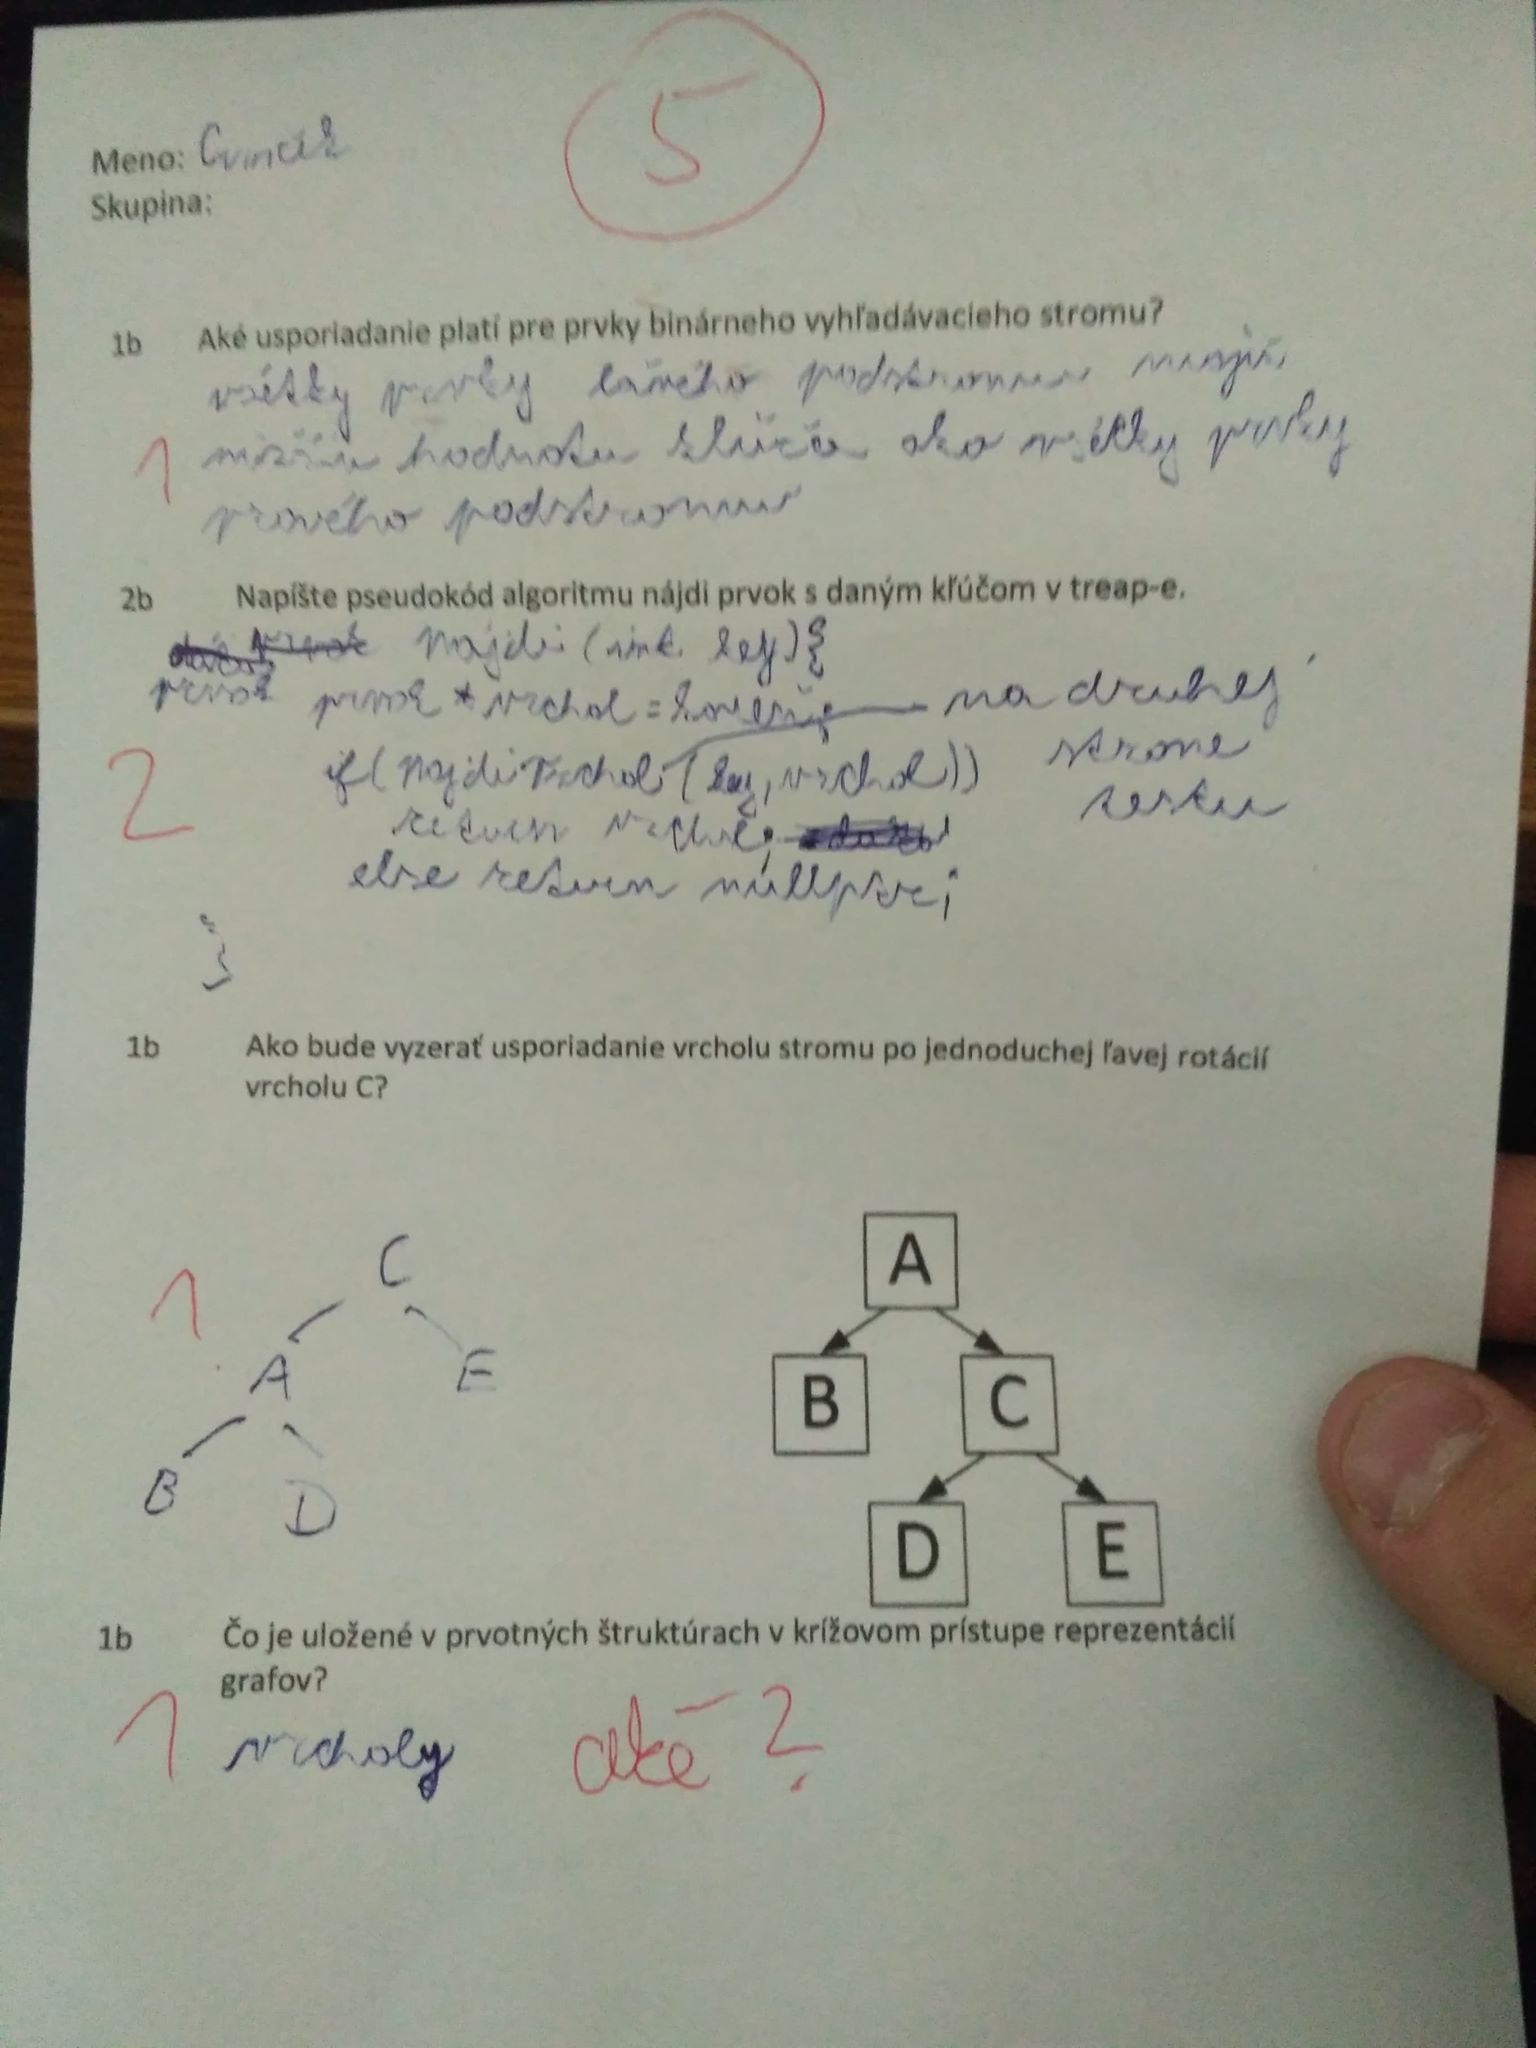 5
Meno:
Skupina:
1b Aké usporiadanie platí pre prvky binárneho vyhľadávacieho stromu?
všetky prvky ľavého podstromu majú
1 nižšiu hodnotu kľúča ako všetky prvky
pravého podstromu
2b Napíšte pseudokód algoritmu nájdi prvok s daným kľúčom v treap-e.
Najdi (int key) {
prvok prvok * vrchol = koreň; na druhej
2 if (NajdiVrchol (key, vrchol)) strane
return vrchol; testu
else return nullptr;
}
1b Ako bude vyzerať usporiadanie vrcholu stromu po jednoduchej ľavej rotácií
vrcholu C?
1
C
A E
B D
A
B C
D E
1b Čo je uložené v prvotných štruktúrach v krížovom prístupe reprezentácií
grafov?
1 vrcholy aké ?